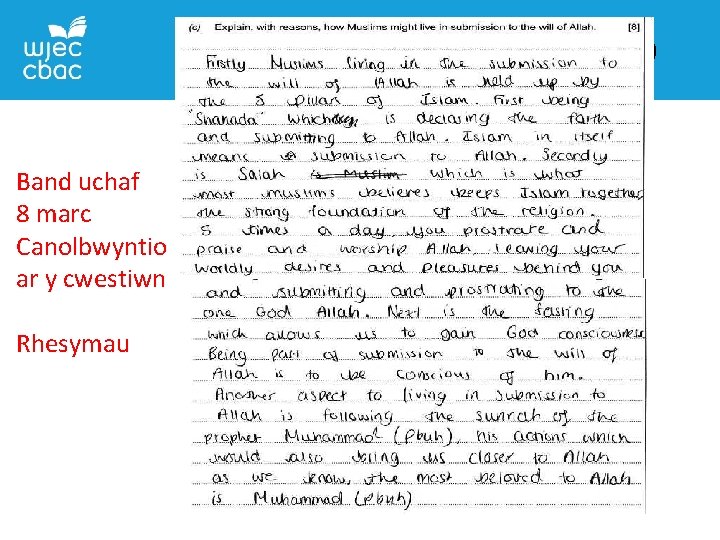 wjec
cbac
Band uchaf
8 marc
Canolbwyntio
ar y cwestiwn
Rhesymau
(c) Explain, with reasons, how Muslims might live in submission to the will of Allah. [8]
Firstly Muslims living in the submission to
the will of Allah is held up by
the 5 pillars of Islam. First being
"Shahada" which is declaring the faith
and submitting to Allah. Islam in itself
means submission to Allah. Secondly
is Salah is Muslim which is what
most muslims believes keeps Islam together
the strong foundation of the religion.
5 times a day, you prostrate and
praise and worship Allah, leaving your
worldly desires and pleasures behind you
and submitting and prostrating to the
one God Allah. Next is the fasting
which allows us to gain God consciousness
Being part of submission to the will of
Allah is to be conscious of him.
Another aspect to living in submission to
Allah is following the sunnah of the
prophet Muhammad (pbuh), his actions which
would also bring us closer to Allah
as we know, the most beloved to Allah
is Muhammad (pbuh)